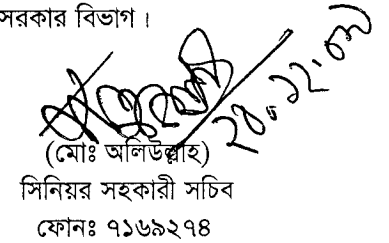 সরকার বিভাগ।
২৪.১২.০৭
(মোঃ অলিউল্লাহ)
সিনিয়র সহকারী সচিব
ফোনঃ ৭১৬৯২৭৪